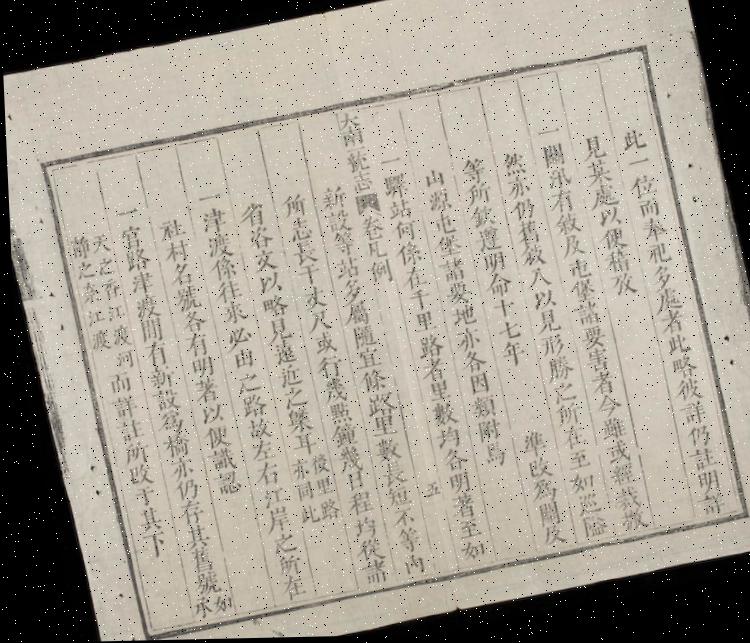 此一位而奉祀多處者此略彼詳仍註明詳
見某處以便稽攷
一關汛有敘及屯堡諸要害者今雖或經裁撤
然亦仍舊敘入以見形勝之所在至如巡隘
等所欽遵明命十七年準改為關反
山源屯堡諸要地亦各因類附焉
一驛站何係在千里路者里數均各明著至如
大南一統志 卷凡例 五
新設等站多屬隨宜條路里數長短不等內
所志長干丈尺或行幾點鐘幾日程均從諸
省咨文以略見遠近之㮣耳後里路亦同此
一津渡係往來必由之路故左右江岸之所在
社村名號各有明著以便識認
一官路津渡間有新設為橋亦仍存其舊號如承
天之香江渡河靜之奈江渡而詳註所改于其下